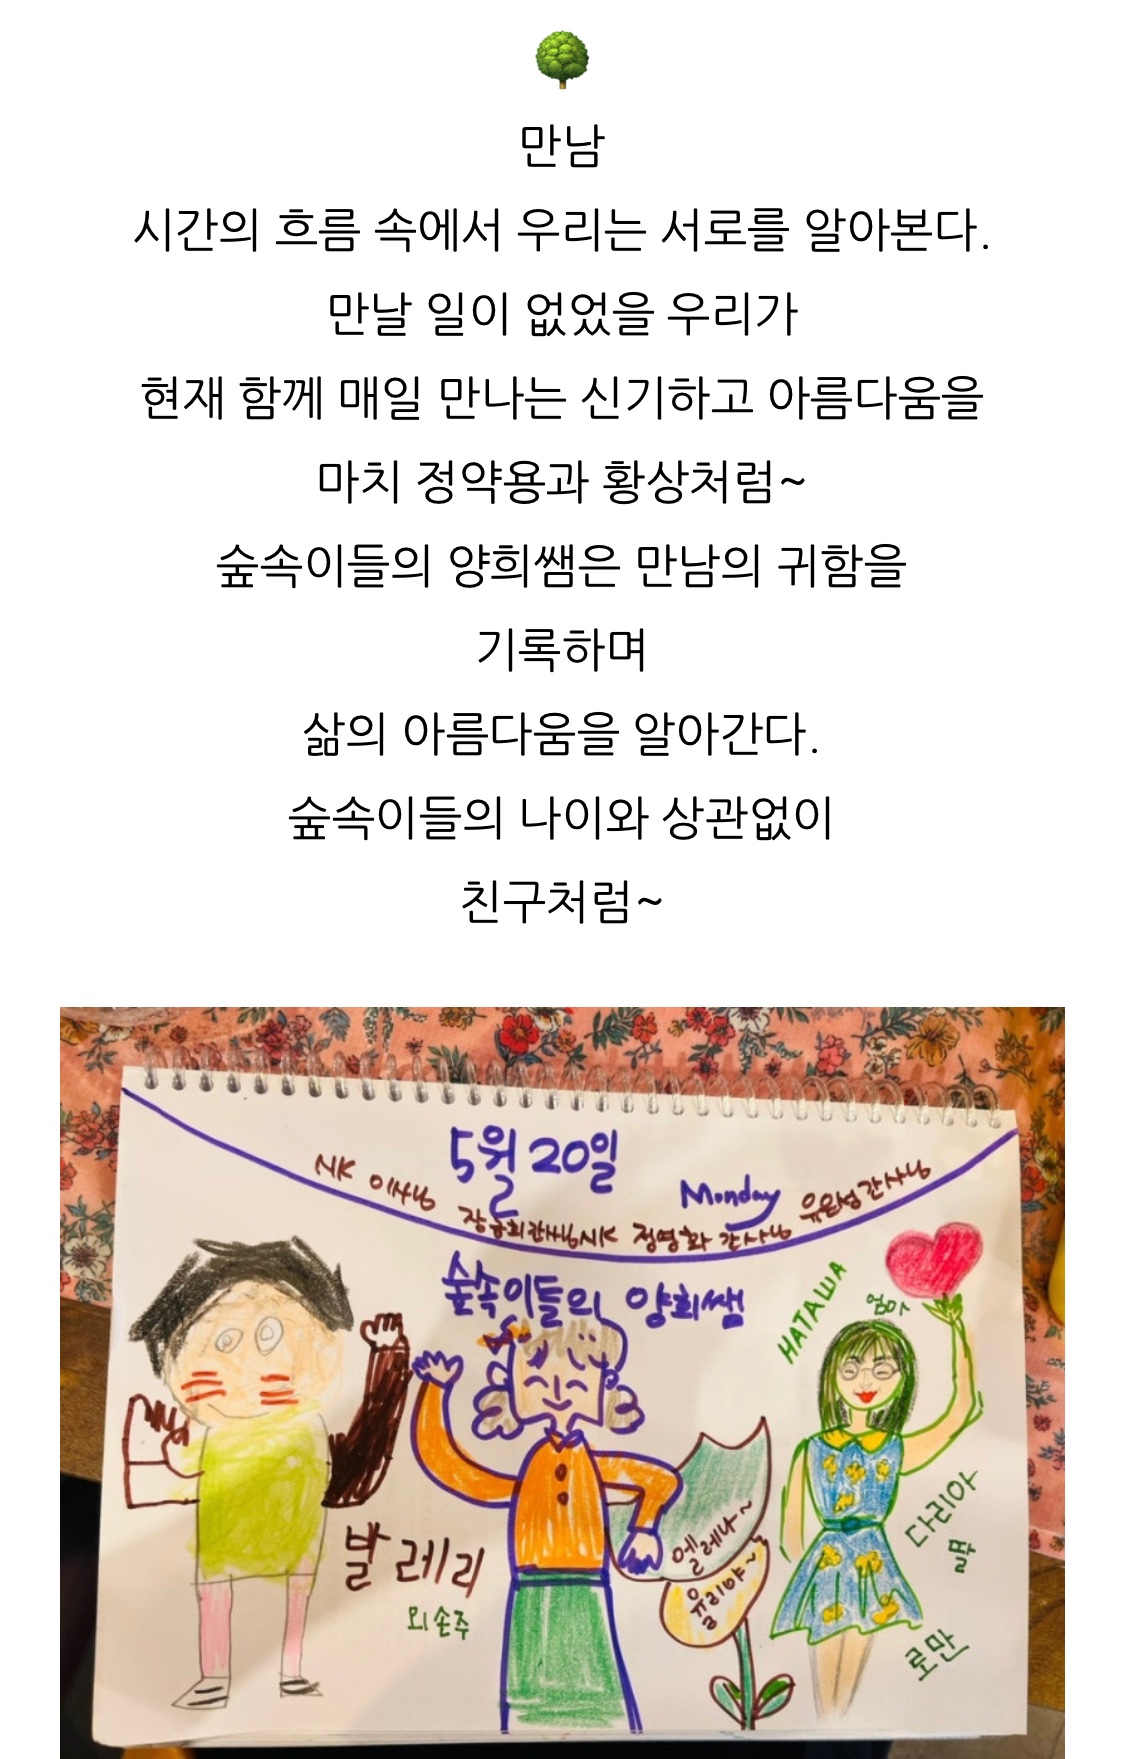 만남
시간의 흐름 속에서 우리는 서로를 알아본다.
만날 일이 없었을 우리가
현재 함께 매일 만나는 신기하고 아름다움을
마치 정약용과 황상처럼~
숲속이들의 양희쌤은 만남의 귀함을
기록하며
삶의 아름다움을 알아간다.
숲속이들의 나이와 상관없이
친구처럼~
5월 20일
Monday
NK 이사님
간사님 NK 정영화 간사님
간사님
숲속이들의 양희쌤
HATAWA
엄마
발레리
외손주
엘레나~
율리야~
다리아
딸
로만